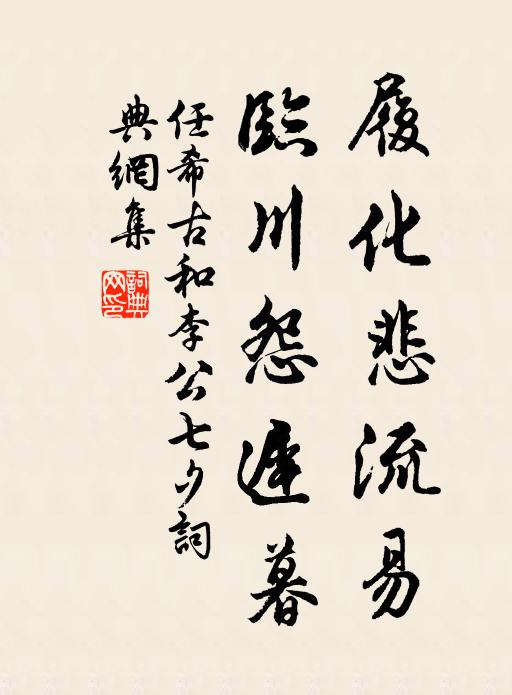 履化悲流易
臨川怨遲暮
任希古和李公七夕詞
典網集
詞典網印